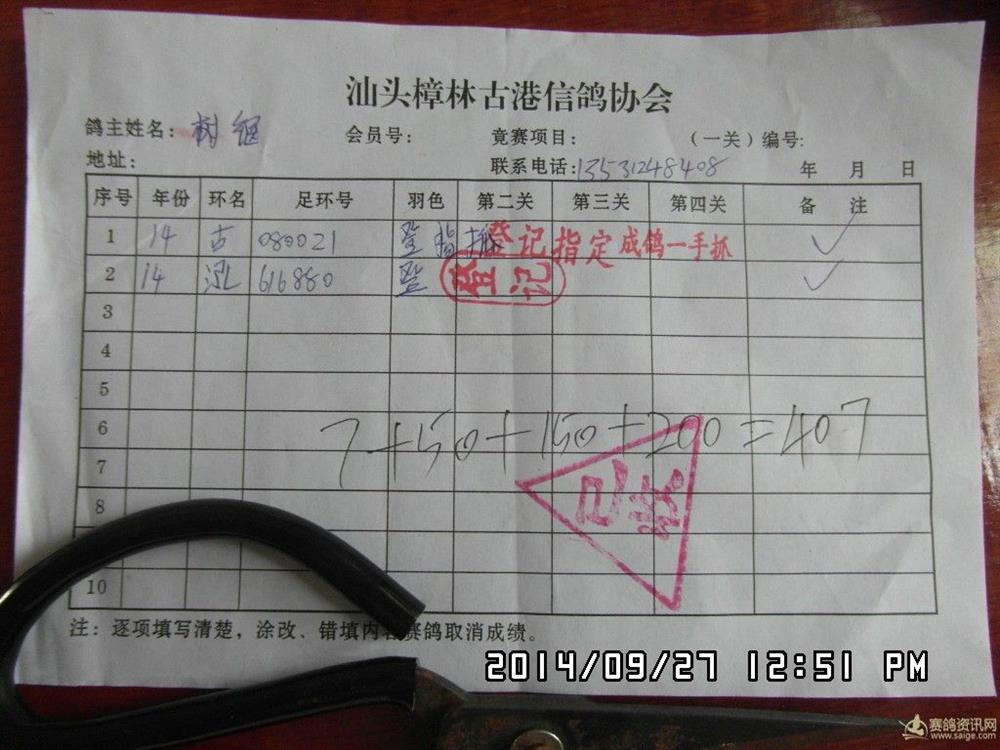 汕头樟林古港信鸽协会
鸽主姓名： 树继 会员号： 竟赛项目： （一关）编号：
地址： 联系电话：13531248408 年 月 日
序号 年份 环名 足环号 羽色 第二关 第三关 第四关 备 注
1 14 古 080021 登记指定成鸽一手抓 ✓
2 14 泓 616880 登记 ✓
3
4
5
6 7+50+150+200=407
7
8 已装
10
注：逐项填写清楚，涂改、错填内容赛鸽取消成绩。
2014/09/27 12:51 PM
赛鸽资讯网
www.saige.com